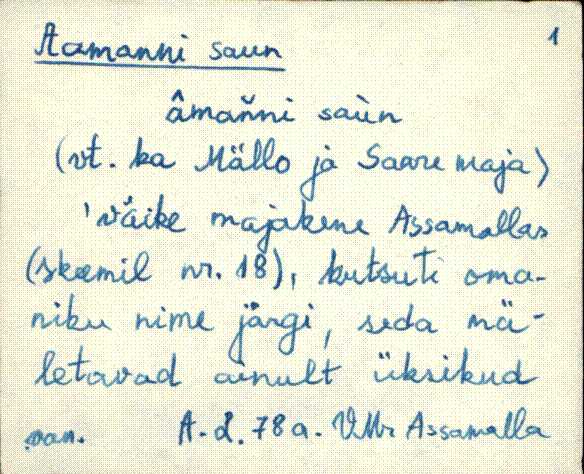 1
Aamanni saun
âmañni saùn
(vt. ka Mällo ja Saare maja)
'väike majakene Assamallas
(skeemil nr. 18), kutsuti oma-
niku nime järgi, seda mä-
letavad ainult üksikud
van. A. L. 78 a. VMr Assamalla